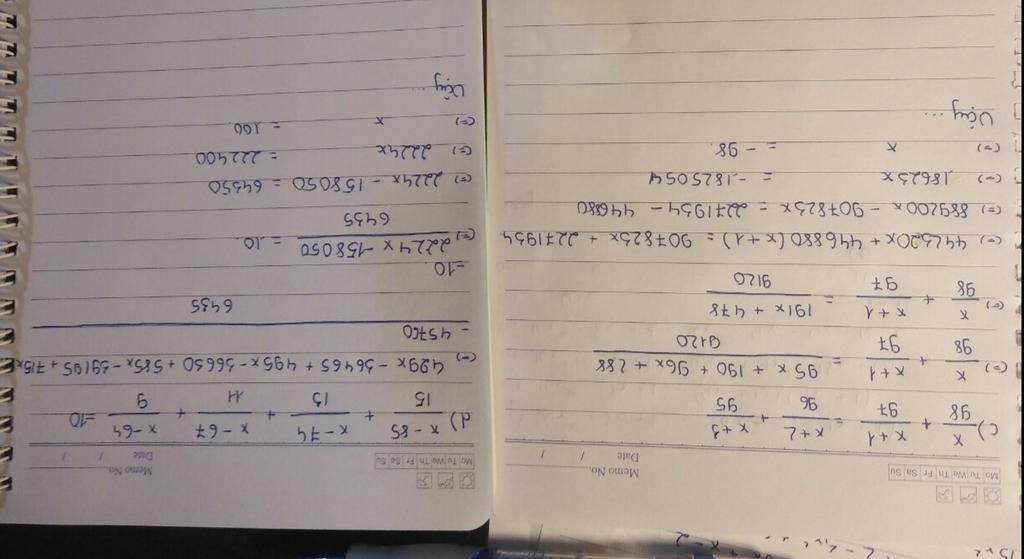 Memo No.
Mo Tu We Th Fr Sa Su
Date / /
c) x/98 + x+1/97 = x+2/96 + x+3/95
(=) x/98 + x+1/97 = 95x + 190 + 96x + 288/9120
(=) x/98 + x+1/97 = 191x + 478/9120
(=) 442320x + 446880(x+1) = 907823x + 2271934
(=) 889200x - 907823x = 2271934 - 446880
(=) -18623x = -1825054
(=) x = -98
Vậy ...
Memo No.
Mo Tu We Th Fr Sa Su
Date / /
d) x-85/15 + x-74/13 + x-67/11 + x-64/9 = 10
(=) 429x - 36465 + 495x - 36630 + 585x - 39195 + 715x
- 45760
6435
= 10
(=) 2224x - 158050/6435 = 10.
(=) 2224x - 158050 = 64350
(=) 2224x = 222400
(=) x = 100.
Vậy ...